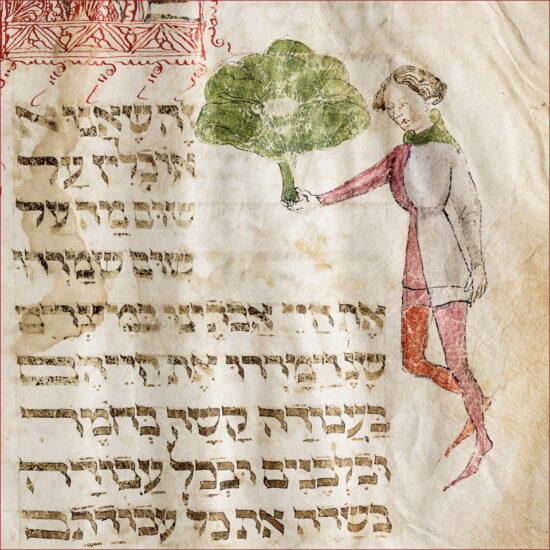 זה שאנו א
אוכלין על
שום מה על
שום שמררו
את חיי אבותינו במצרים
שנ' וימררו את חייהם
בעבודה קשה בחמר
ובלבנים ובכל עבודה
בשדה את כל עבודתם